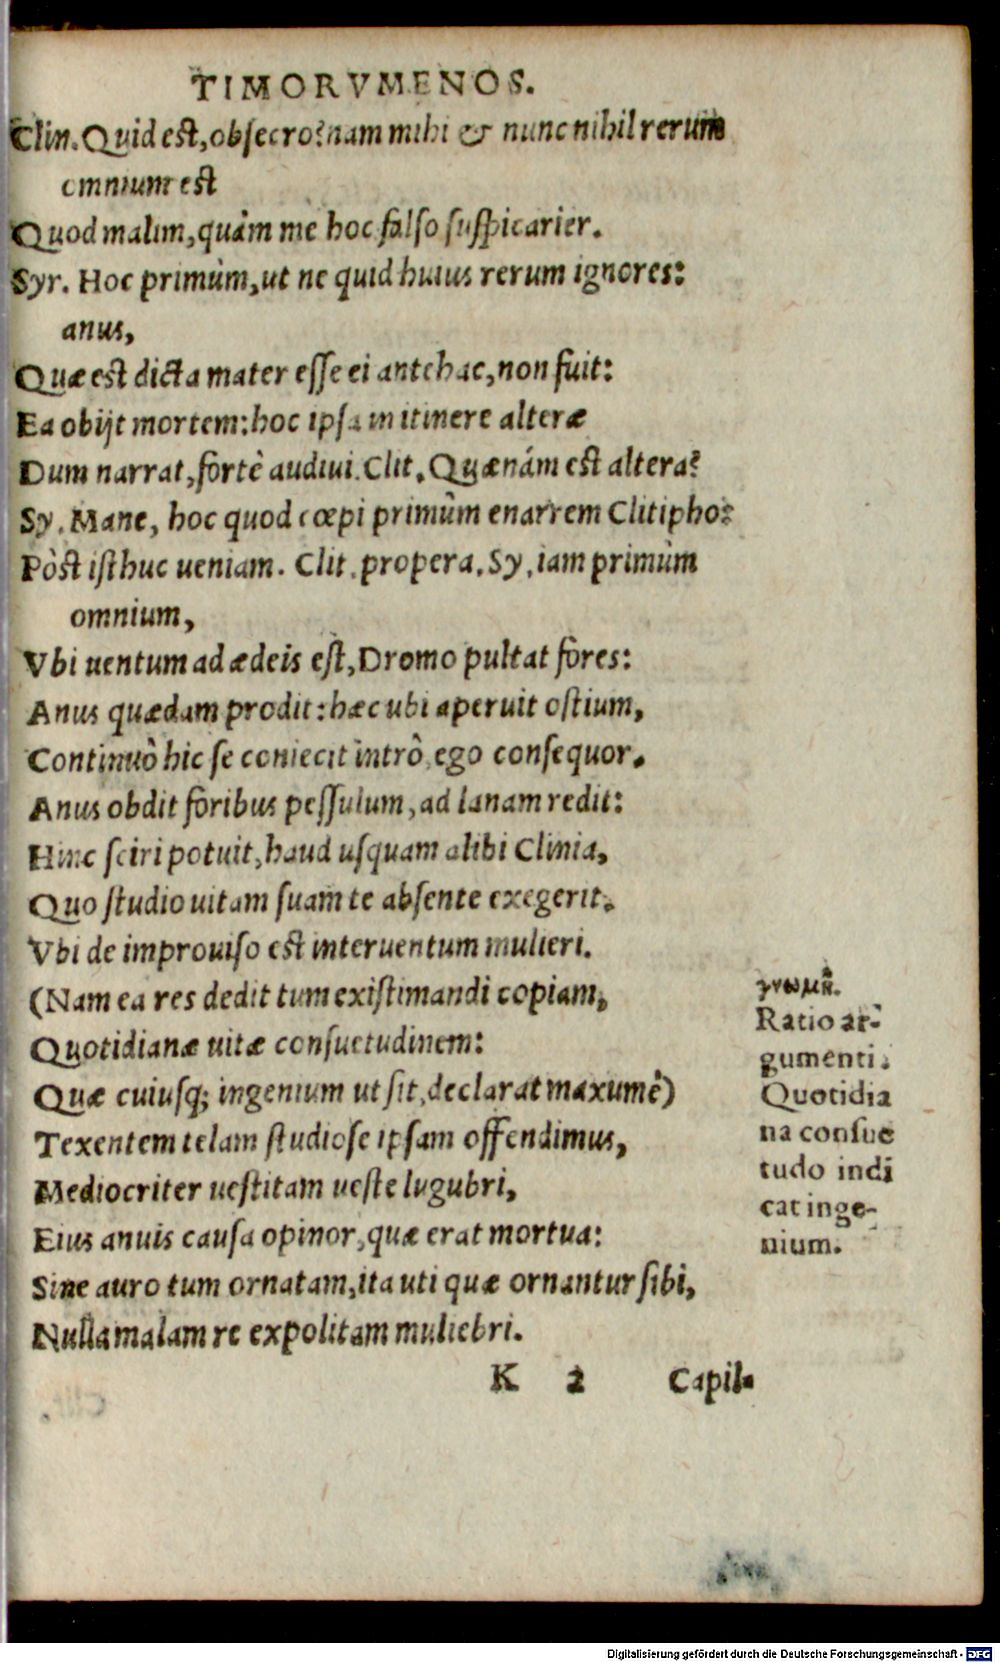 TIMORVMENOS.
Clin. Quid est, obsecro? nam mihi & nunc nihil rerum
omnium est
Quod malim, quàm me hoc falso suspicarier.
Syr. Hoc primùm, ut ne quid huius rerum ignores:
anus,
Quæ est dicta mater esse ei antehac, non fuit:
Ea obijt mortem: hoc ipsa in itinere alteræ
Dum narrat, fortè audiui. Clit. Quænám est altera?
Sy. Mane, hoc quod cœpi primùm enarrem Clitipho:
Pòst isthuc ueniam. Clit. propera. Sy. iam primùm
omnium,
Vbi uentum ad ædeis est, Dromo pultat fores:
Anus quædam prodit: hæc ubi aperuit ostium,
Continuò hic se coniecit intrò, ego consequor.
Anus obdit foribus pessulum, ad lanam redit:
Hinc sciri potuit, haud usquam alibi Clinia,
Quo studio uitam suam te absente exegerit.
Vbi de improuiso est interuentum mulieri.
(Nam ea res dedit tum existimandi copiam,
Quotidianæ uitæ consuetudinem:
Quæ cuiusq; ingenium ut sit, declarat maxumè)
Texentem telam studiose ipsam offendimus,
Mediocriter uestitam ueste lugubri,
Eius anuis causa opinor, quæ erat mortua:
Sine auro tum ornatam, ita uti quæ ornantur sibi,
Nulla malam re expolitam muliebri.
γνωμὴ.
Ratio ar-
gumenti.
Quotidia
na consue
tudo indi
cat inge-
nium.
K 2 Capil-
Digitalisierung gefördert durch die Deutsche Forschungsgemeinschaft - DFG